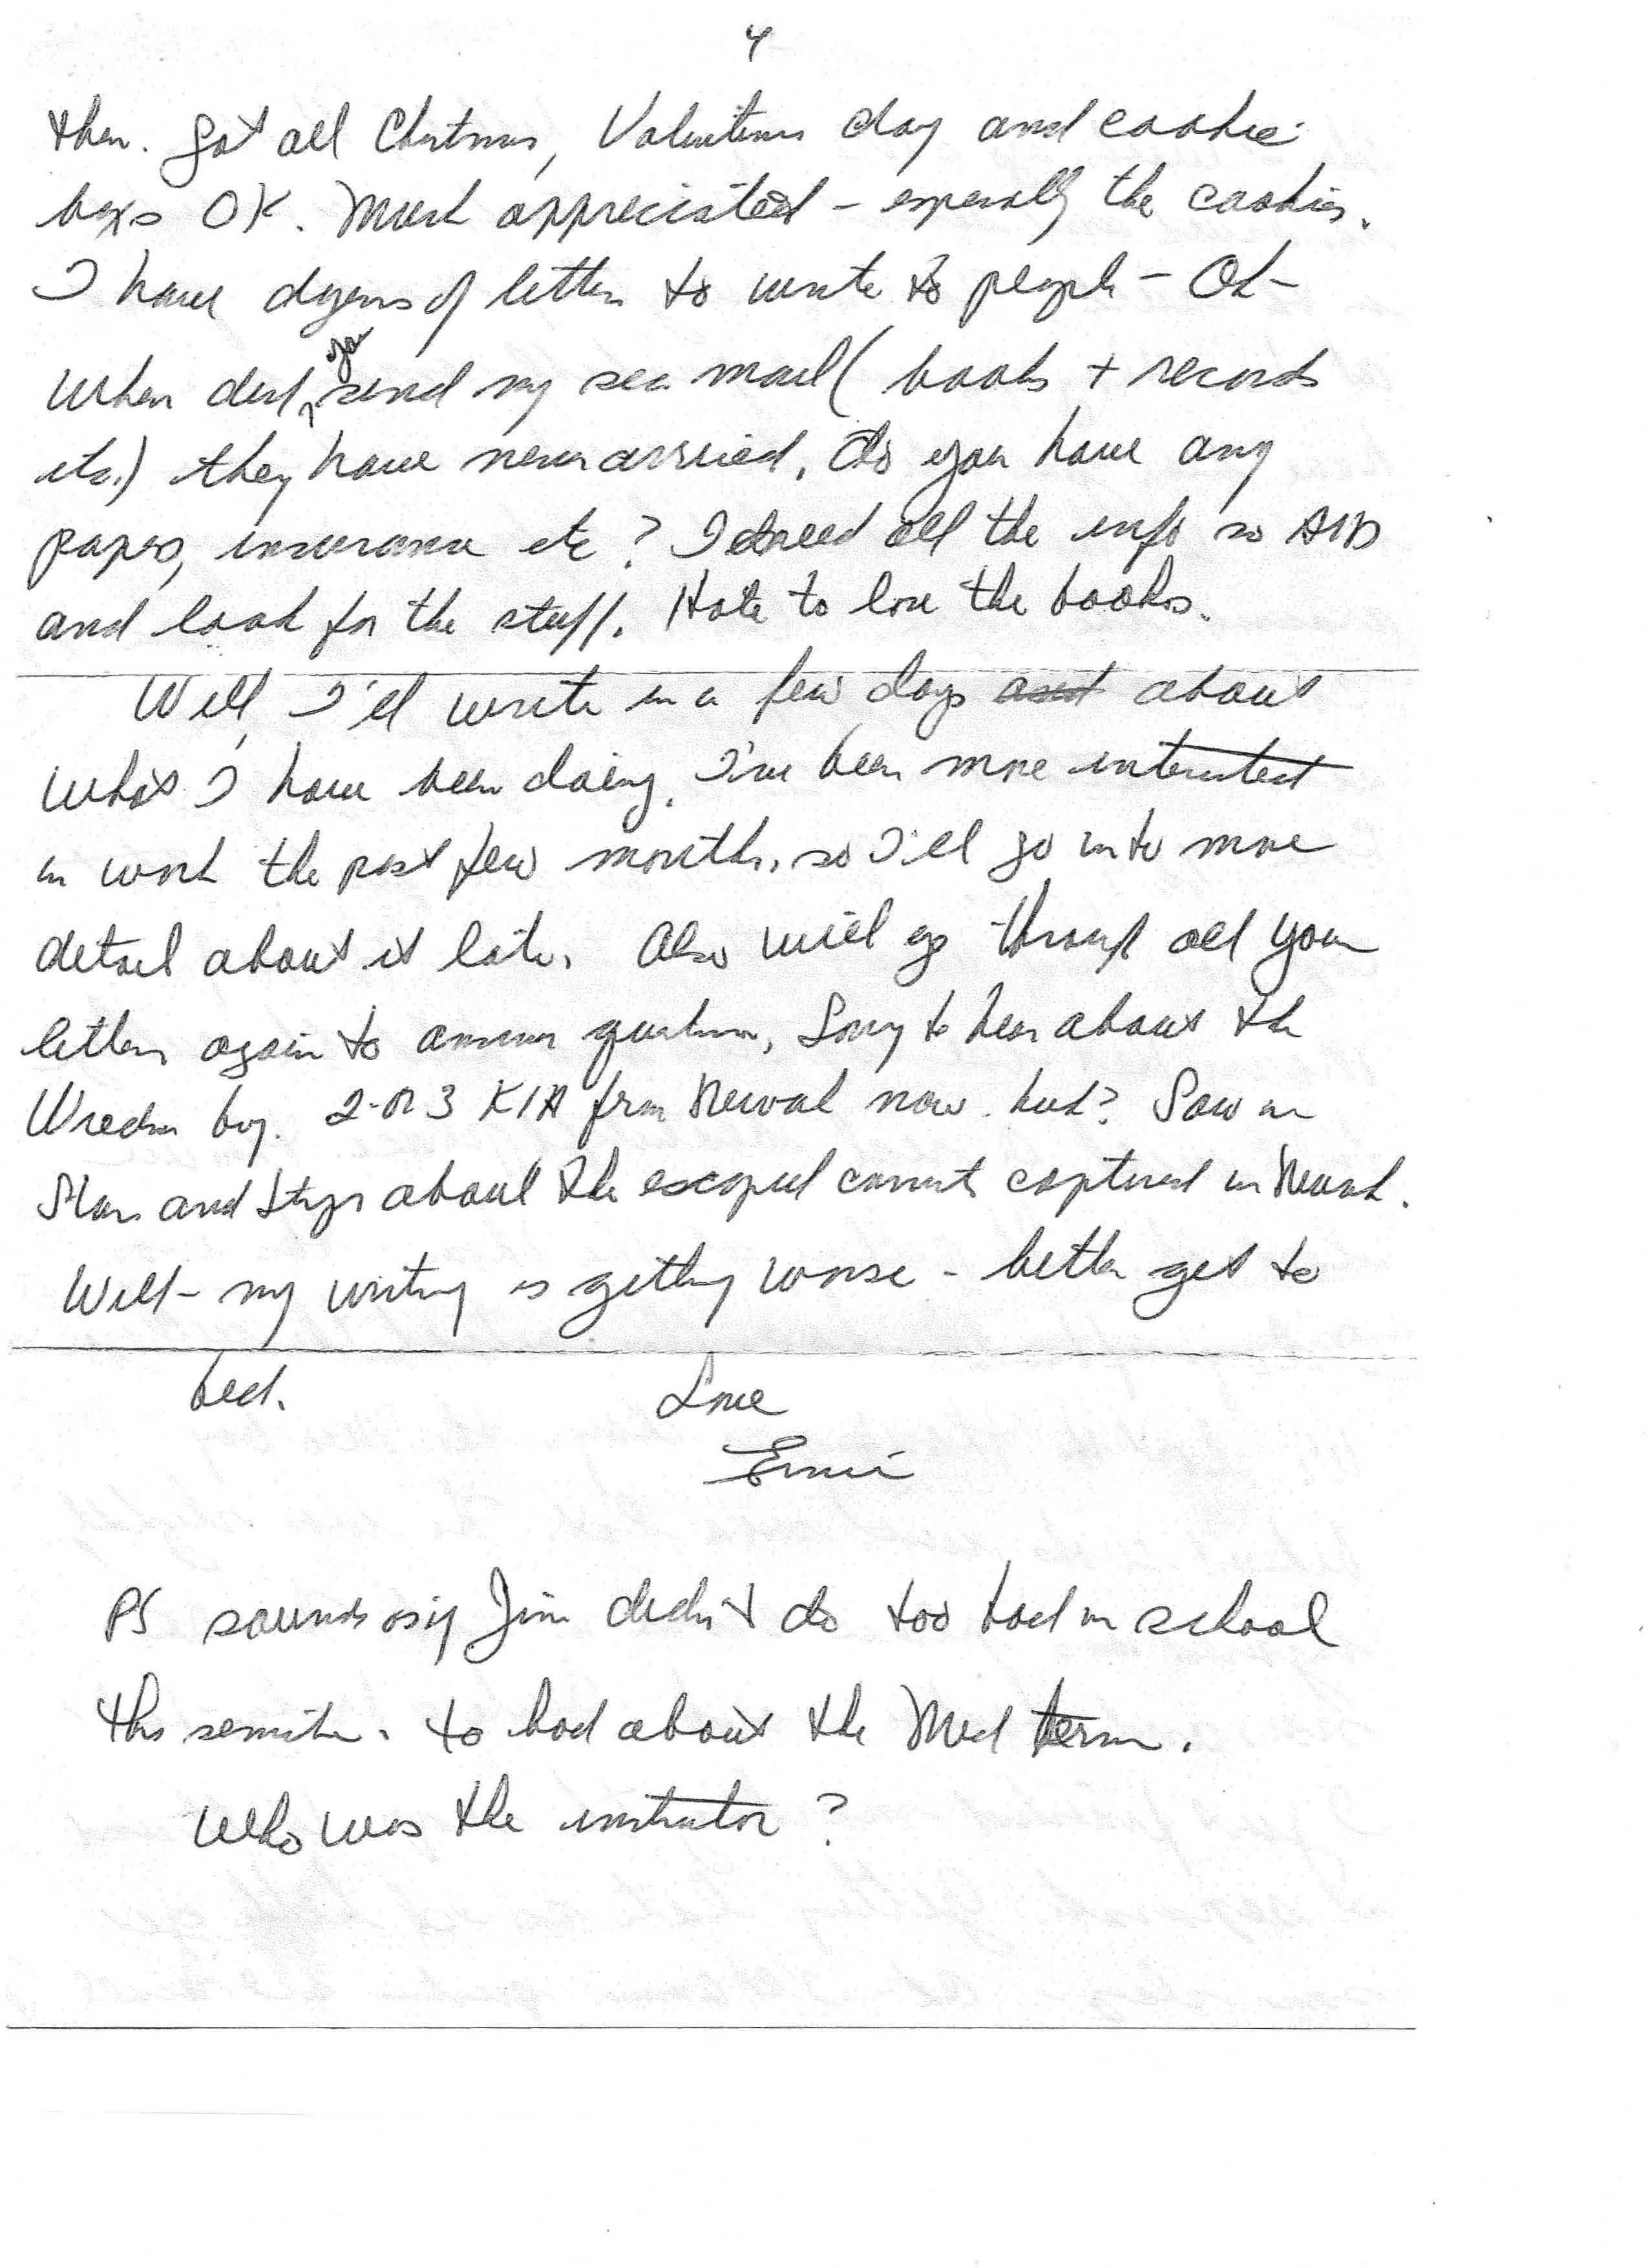 4
then. Got all Christmas, Valentines day and cookie
boxes OK. Much appreciated - especially the cookies.
I have dozens of letters to write to people - Oh -
When did you send my sea mail (books + records
etc.) they have never arrived. Do you have any
papers, insurance etc? I need all the info so AID
and look for the stuff. Hate to lose the books.
Well, I'll write in a few days about
what I have been doing. I've been more interested
in work the past few months, so I'll go into more
detail about it later. Also will go through all your
letters again to answer questions. Sorry to hear about the
boy. 2 or 3 KIA from Newark now. huh? Saw in
Stars and Strips about the escaped convicts captured in Newark.
Well - my writing is getting worse - better get to
bed. Love
Ernie
PS sounds as if Jim didn't do too bad in school
this semester. to bad about the Med term.
Who was the instructor?